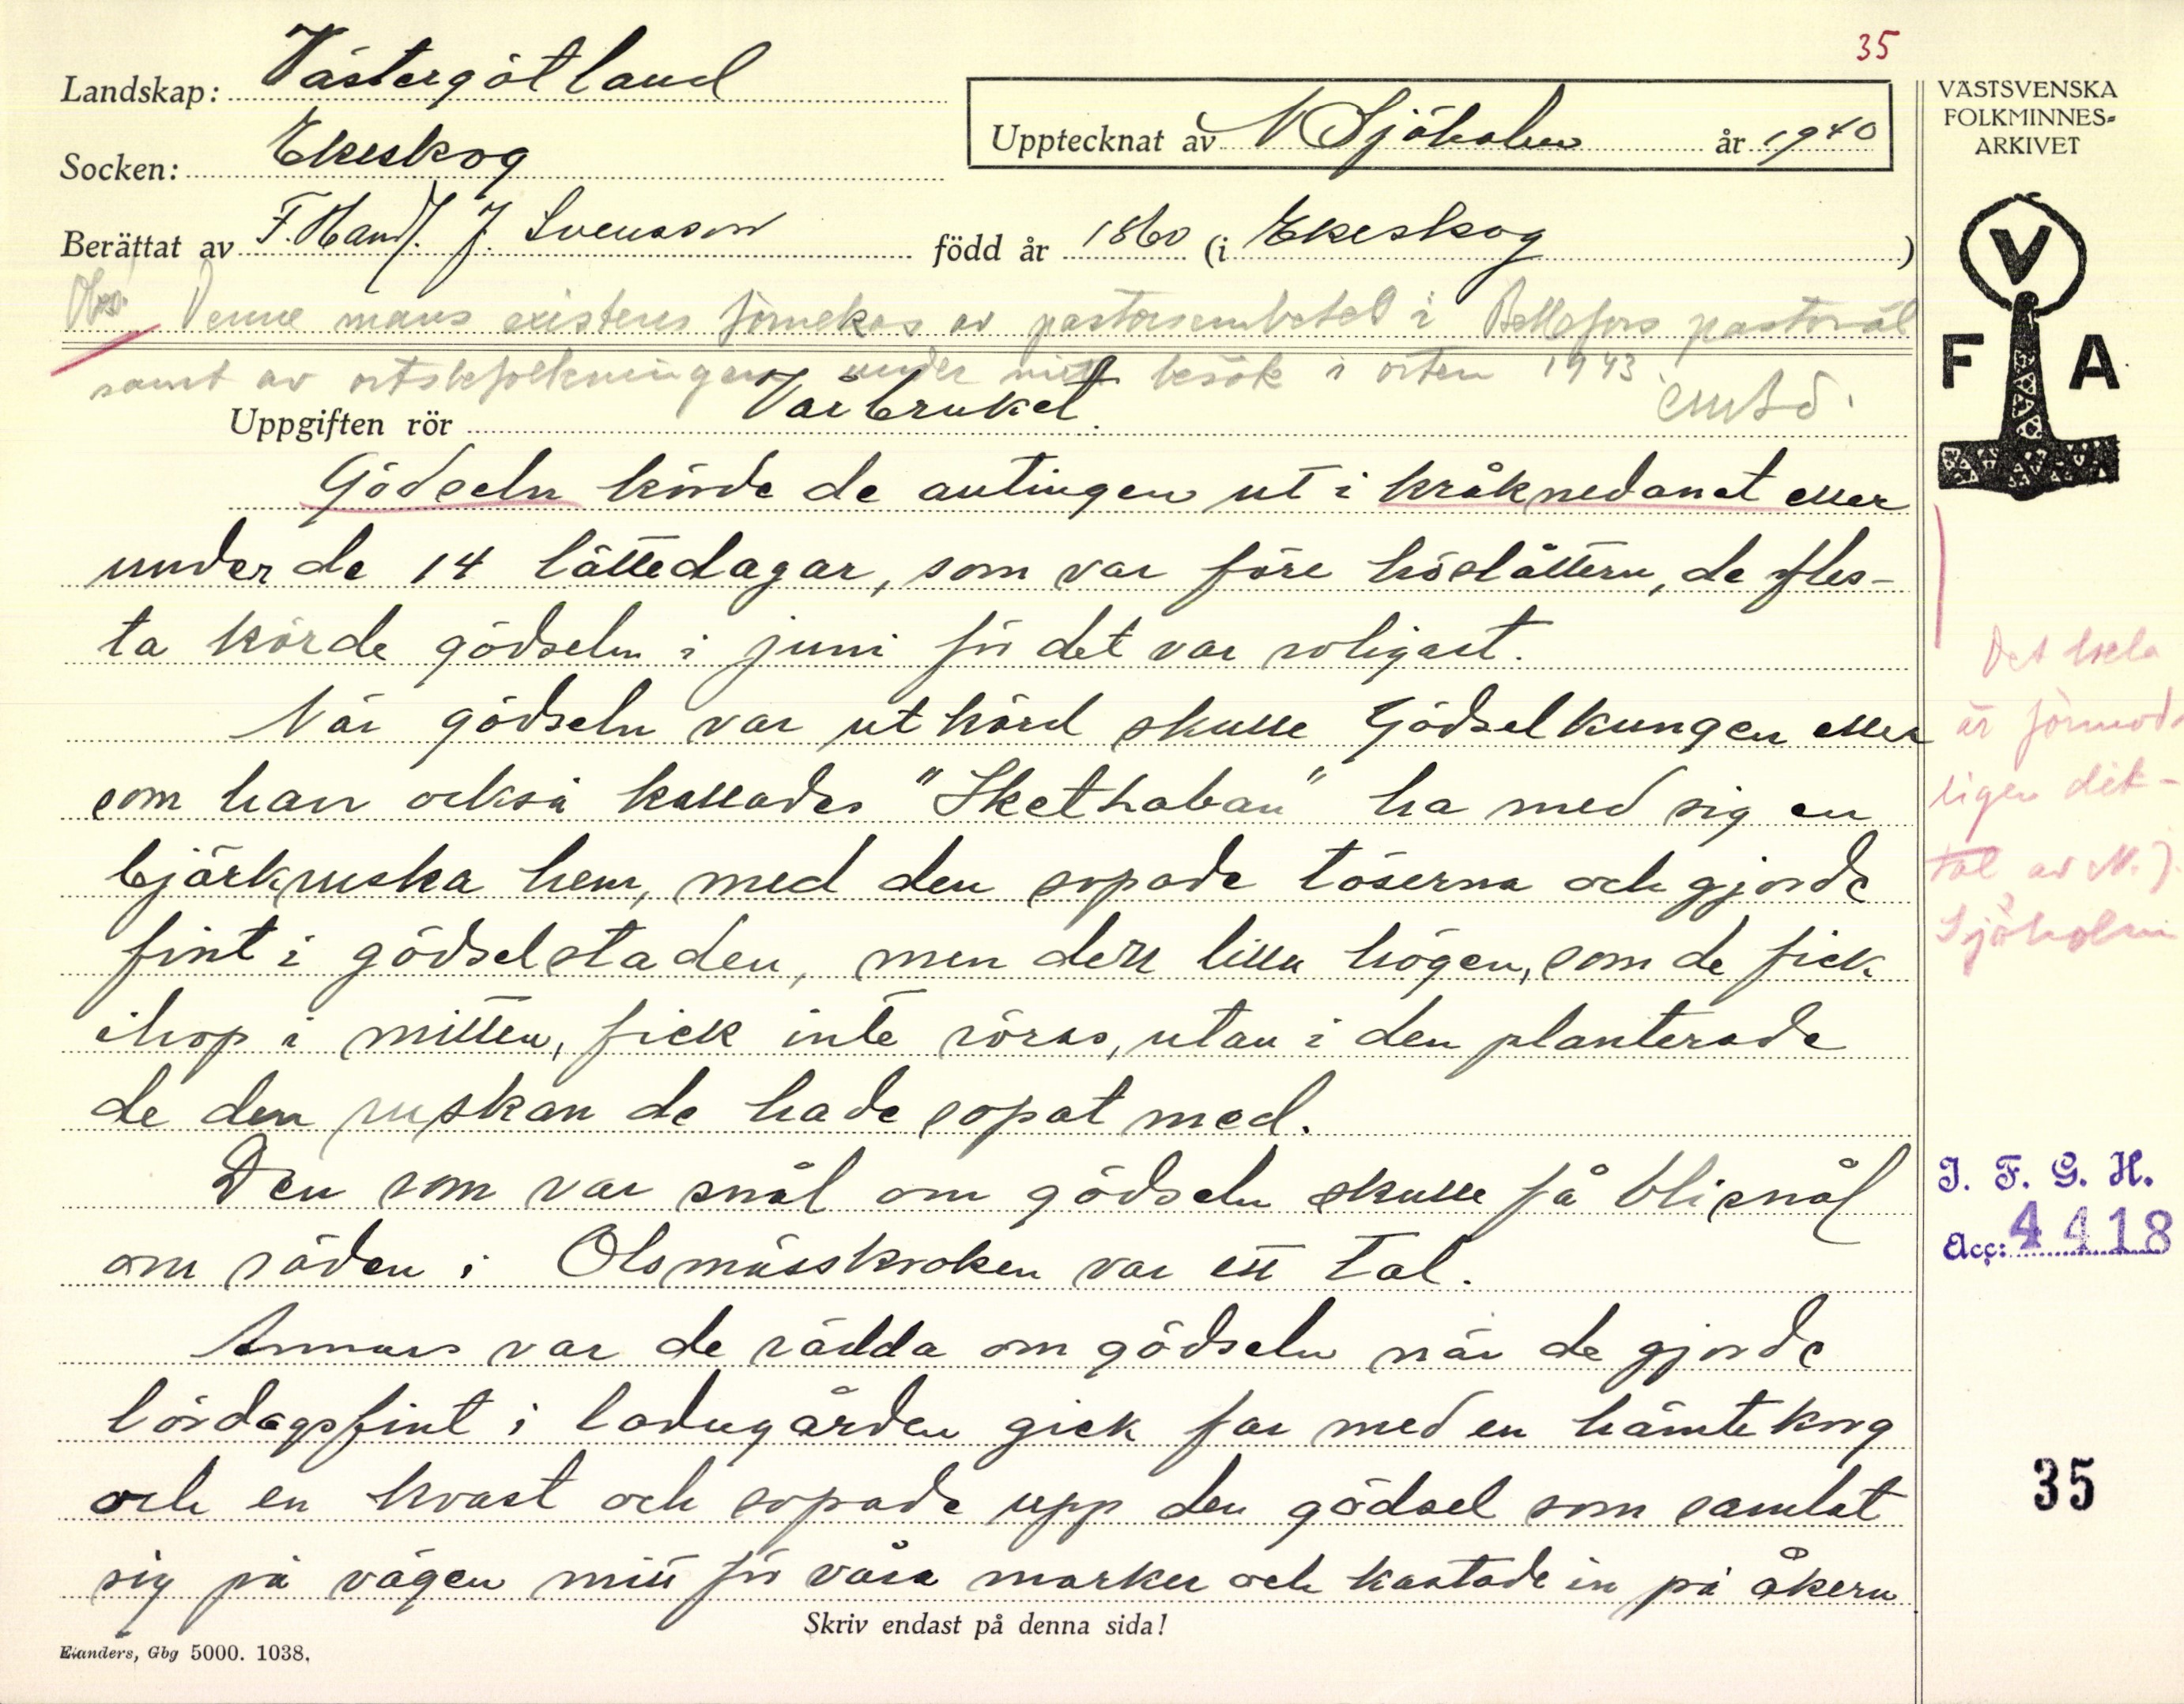 35
Landskap: Västergötland
Socken: Ekeskog
Upptecknat av N Sjöholm år 1940
Berättat av F. Handl. J. Svensson född år 1860 (i Ekeskog)
Obs! Denne mans existens förnekas av pastorsembetet i Bellefors pastorat
samt av ortsbefolkningen under mitt besök i orten 1943
Uppgiften rör Vårbruket.
Gödseln körde de antingen ut i kråknedanet eller
under de 14 lättedagar, som var före höslåttern, de fles-
ta körde gödseln i juni för det var roligast.
När gödseln var utkörd skulle Gödselkungen eller
som han också kallades "Skethaban" ha med sig en
björkruska hem, med den sopade töserna och gjorde
fint i gödselstaden, men den lilla högen, som de fick
ihop i mitten, fick inte röras, utan i den planterade
de den ruskan de hade sopat med.
Den som var snål om gödseln skulle få bli snål
om säden i Olsmässkroken var ett tal.
Annars var de rädda om gödseln när de gjorde
lördagsfint i ladugården gick far med en hämtekorg
och en kvast och sopade upp den gödsel som samlat
sig på vägen mitt för våra marker och kastade in på åkern
Skriv endast på denna sida!
Elanders, Gbg 5000. 1038.
VÄSTSVENSKA
FOLKMINNES-
ARKIVET
V
F A
Det hela
är förmod-
ligen dik-
tat av N. J.
Sjöholm
I. F. G. H.
Acc: 4418
35